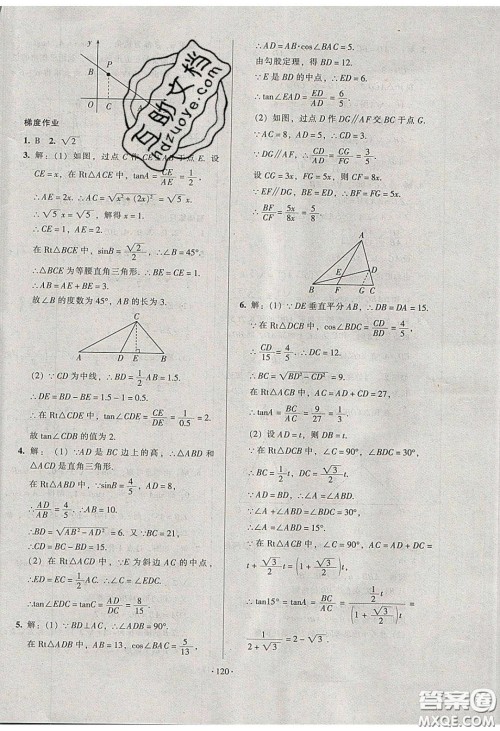 y
B
P
O
C
A
x
梯度作业
1. B 2. √2
3. 解：(1) 如图，过点 C 作 CE⊥AB 于点 E. 设
CE=x，在 Rt△ACE 中，∵tanA=CE/AE=1/2，
∴AE=2x. ∴AC=√(x²+(2x)²)=√5 x=√5.
∴√5 x=√5，解得 x=1.
∴CE=1，AE=2.
在 Rt△BCE 中，sinB=√2/2，∴∠B=45°.
∴△BCE 为等腰直角三角形. ∴BE=CE=1.
∴AB=AE+BE=3.
故∠B 的度数为 45°，AB 的长为 3.
C
A D E B
(2) ∵CD 为中线，∴BD=1/2 AB=1.5.
∴DE=BD-BE=1.5-1=0.5.
在 Rt△CDE 中，tan∠CDE=CE/DE=1/0.5=2.
故 tan∠CDB 的值为 2.
4. 解：(1) ∵AD 是 BC 边上的高，∴△ABD 和
△ACD 是直角三角形.
在 Rt△ABD 中，∵sinB=4/5，AD=8，
∴AD/AB=4/5. ∴AB=10.
∴BD=√(AB²-AD²)=6. 又∵BC=21，
∴CD=BC-BD=15.
(2) 在 Rt△ADC 中，∵E 为斜边 AC 的中点，
∴ED=EC=1/2 AC. ∴∠C=∠EDC.
∴tan∠EDC=tanC=AD/DC=8/15.
5. 解：(1) ∵BD⊥AC，∴∠ADB=90°.
在 Rt△ADB 中，AB=13，cos∠BAC=5/13，
∴AD=AB·cos∠BAC=5.
由勾股定理，得 BD=12.
∵E 是 BD 的中点，∴ED=6.
∴tan∠EAD=ED/AD=6/5.
(2) 如图，过点 D 作 DG∥AF 交 BC 于点 G.
∵AC=8，AD=5，∴CD=3.
∵DG∥AF，∴CD/AD=CG/FG=3/5.
设 CG=3x，FG=5x，则 CF=8x.
∵EF∥DG，BE=ED，∴BF=FG=5x.
∴BF/CF=5x/8x=5/8.
A
E D
B F G C
6. 解：(1) ∵DE 垂直平分 AB，∴DB=DA=15.
在 Rt△DCB 中，cos∠BDC=CD/BD=4/5，
∴CD/15=4/5. ∴DC=12.
∴BC=√(BD²-CD²)=9.
在 Rt△ABC 中，AC=AD+CD=27，
∴tanA=BC/AC=9/27=1/3.
(2) 设 AD=t，则 DB=t.
在 Rt△DCB 中，∵∠BDC=30°，
∴BC=1/2 t，DC=√3/2 t.
∵AD=BD，∴∠A=∠ABD.
∵∠A+∠ABD=∠BDC=30°，
∴∠A=15°.
在 Rt△ABC 中，∵∠C=90°，AC=AD+DC=
t+√3/2 t=(1+√3/2)t，
∴tan15°=tanA=BC/AC=(1/2 t)/((1+√3/2)t)=
1/(2+√3)=2-√3.
·120·
互助文档
hdzuoye.com
答案圈
MXQE.COM